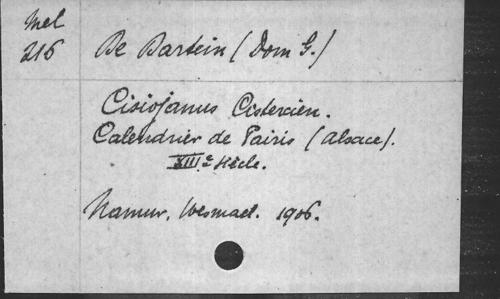 Mel
216
De Bartein (Dom G.)
Cisiojanus Cistercien.
Calendrier de Pairis (Alsace).
XIIIe siècle.
Namur, Wesmael. 1906.